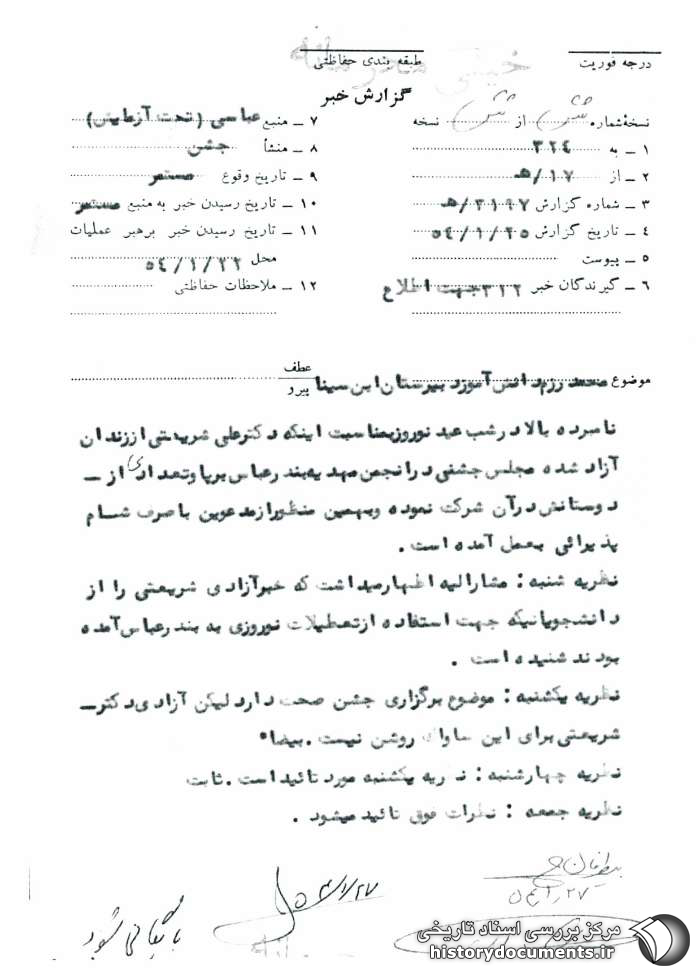 درجه فوریت
طبقه بندی حفاظتی
خیلی محرمانه
گزارش خبر
نسخهٔ شماره از نسخه
۱ ـ به ۳۲۴
۲ ـ از ۱۷/هـ
۳ ـ شماره گزارش ۲۱۹۷/هـ
۴ ـ تاریخ گزارش ۵۴/۱/۲۵
۵ ـ پیوست
۶ ـ گیرندگان خبر ۳۱۲ جهت اطلاع
۷ ـ منبع عباسی (تحت آزمایش)
۸ ـ منشأ جشن
۹ ـ تاریخ وقوع مستمر
۱۰ ـ تاریخ رسیدن خبر به منبع مستمر
۱۱ ـ تاریخ رسیدن خبر برهبر عملیات
محل ۵۴/۱/۲۲
۱۲ ـ ملاحظات حفاظتی
موضوع محمد رزم دانش آموز دبیرستان ابن سینا
عطف
پیرو
نامبرده بالا در شب عید نوروز بمناسبت اینکه دکتر علی شریعتی از زندان
آزاد شده مجلس جشنی در انجمن مهدیه بندرعباس برپا و تعدادی از ـ
دوستانش در آن شرکت نموده و بهمین منظور از مدعوین با صرف شام
پذیرائی بعمل آمده است .
نظریه شنبه : مشارالیه اظهار میداشت که خبر آزادی شریعتی را از
دانشجویانیکه جهت استفاده از تعطیلات نوروزی به بندرعباس آمده
بودند شنیده است .
نظریه یکشنبه : موضوع برگزاری جشن صحت دارد لیکن آزادی دکتر ـ
شریعتی برای این ساواک روشن نیست . بیضا
نظریه چهارشنبه : نظریه یکشنبه مورد تائید است . ثابت
نظریه جمعه : نظرات فوق تائید میشود .
۵۴/۱/۲۷
۵۴/۱/۲۷
بایگانی شود
مرکز بررسی اسناد تاریخی
historydocuments.ir